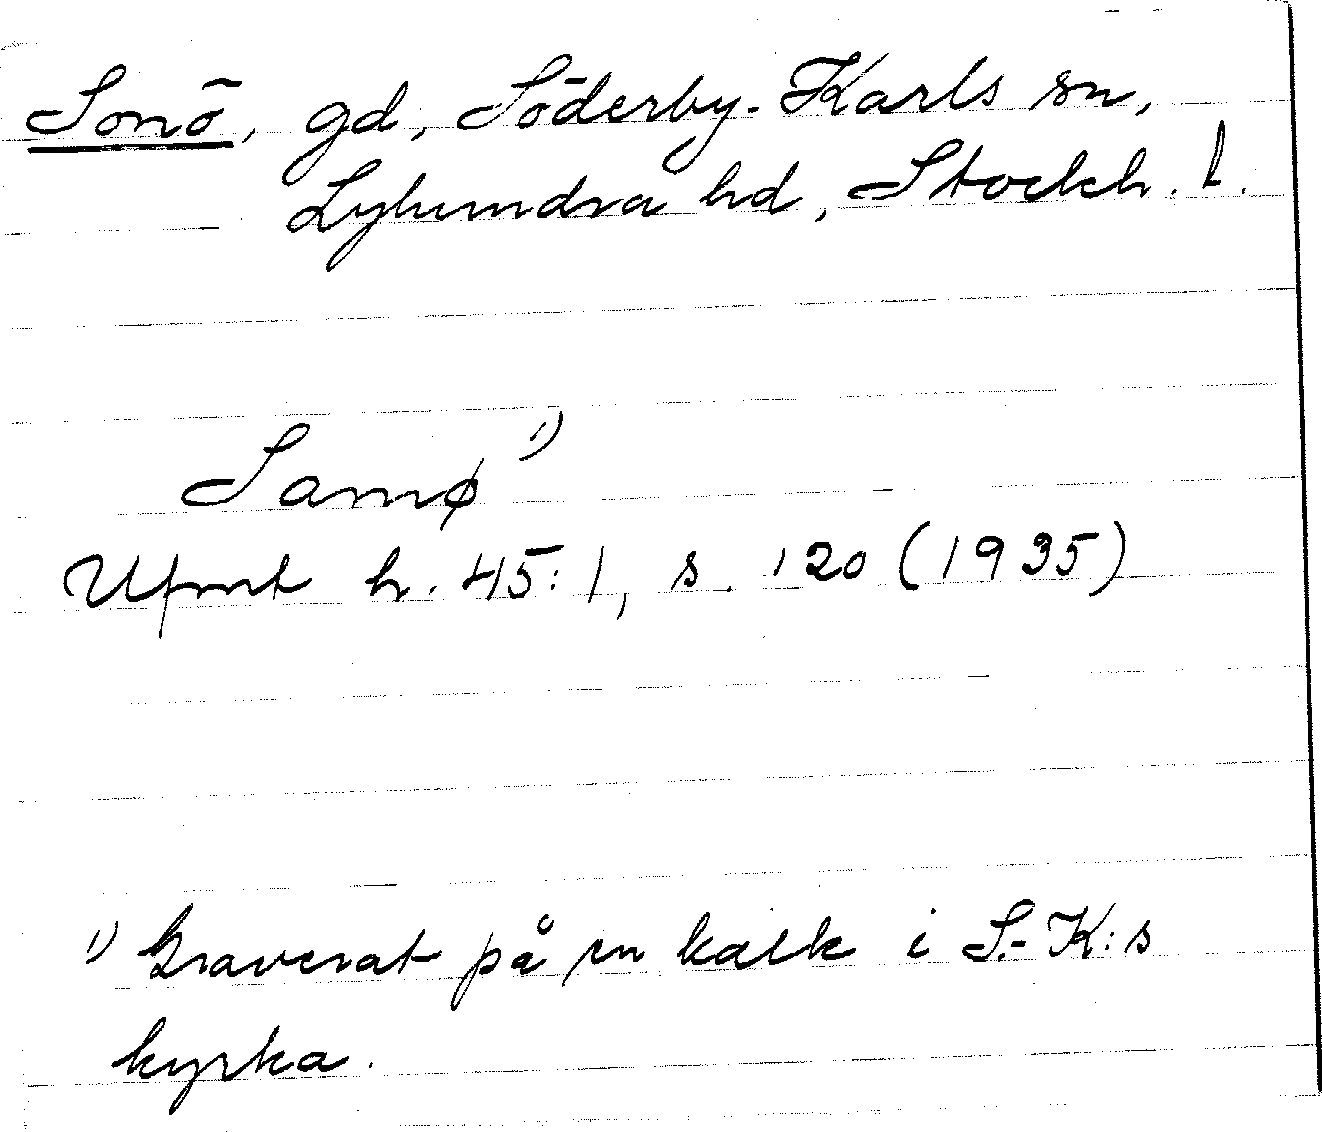 Sonö, gd, Söderby-Karls sn,
Lyhundra hd, Stockh. l.
Samø 1)
Ufmt h. 45:1, s. 120 (1935)
1) Graverat på en kalk i S.-K:s
kyrka.